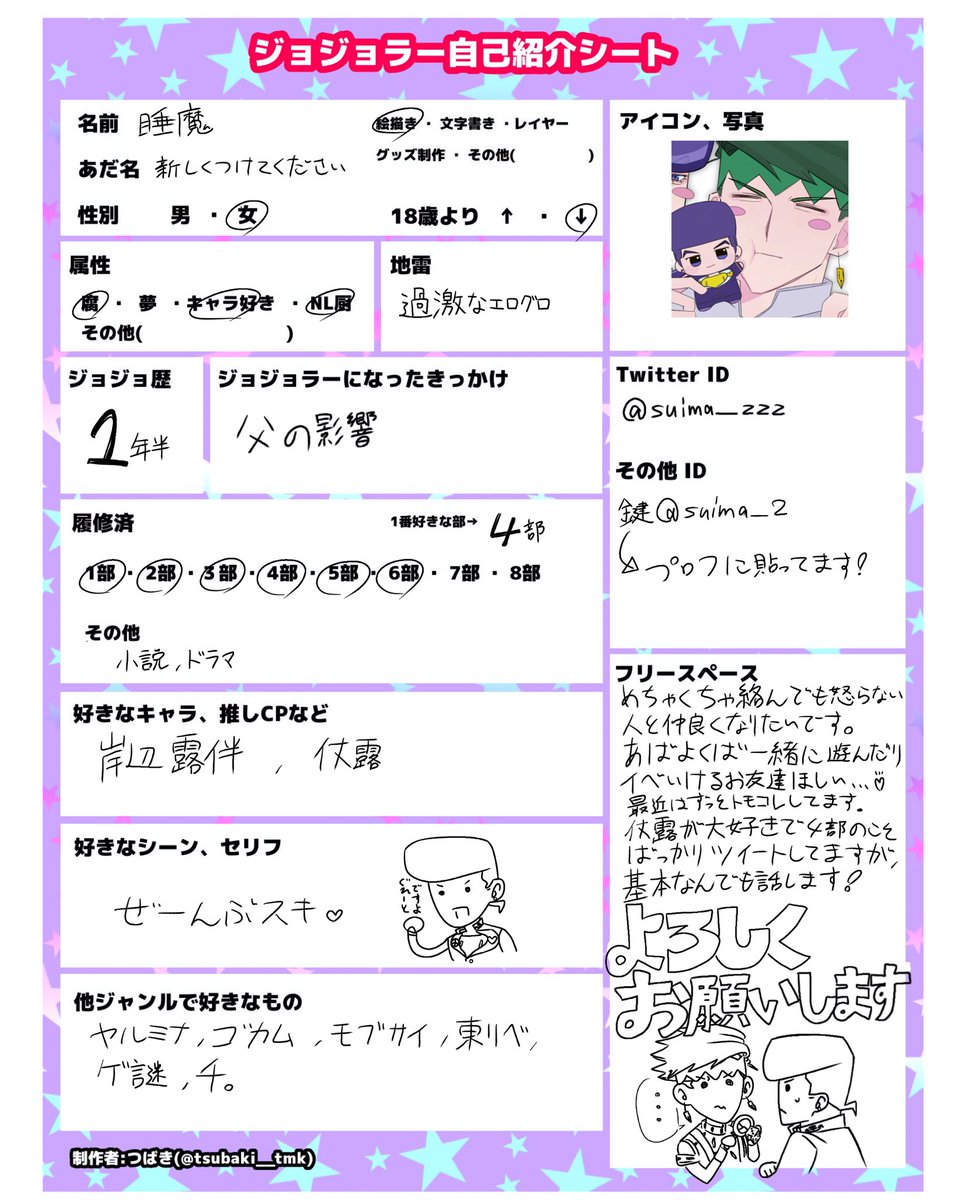 ジョジョラー自己紹介シート
名前 睡魔
絵描き・文字書き・レイヤー
グッズ制作・その他( )
あだ名 新しくつけてください
性別 男・女
18歳より ↑・↓
アイコン、写真
属性
腐・夢・キャラ好き・NL厨
その他( )
地雷
過激なエログロ
ジョジョ歴
1年半
ジョジョラーになったきっかけ
父の影響
Twitter ID
@suima_zzz
その他 ID
鍵@suima_2
プロフに貼ってます!
履修済
1番好きな部→ 4部
1部・2部・3部・4部・5部・6部・7部・8部
その他
小説,ドラマ
好きなキャラ、推しCPなど
岸辺露伴,仗露
好きなシーン、セリフ
ぜーんぶスキ♡
ですよ
ぐれーと
他ジャンルで好きなもの
ヤルミナ,ゴカム,モブサイ,東リベ,
ゲ謎,チ。
フリースペース
めちゃくちゃ絡んでも怒らない
人と仲良くなりたいです。
あばよくば一緒に遊んだり
イベいけるお友達ほしい...♡
最近はずっとトモコレしてます。
仗露が大好きで4部のこと
ばっかりツイートしてますが,
基本なんでも話します!
よろしく
お願いします
...
制作者:つばき(@tsubaki__tmk)